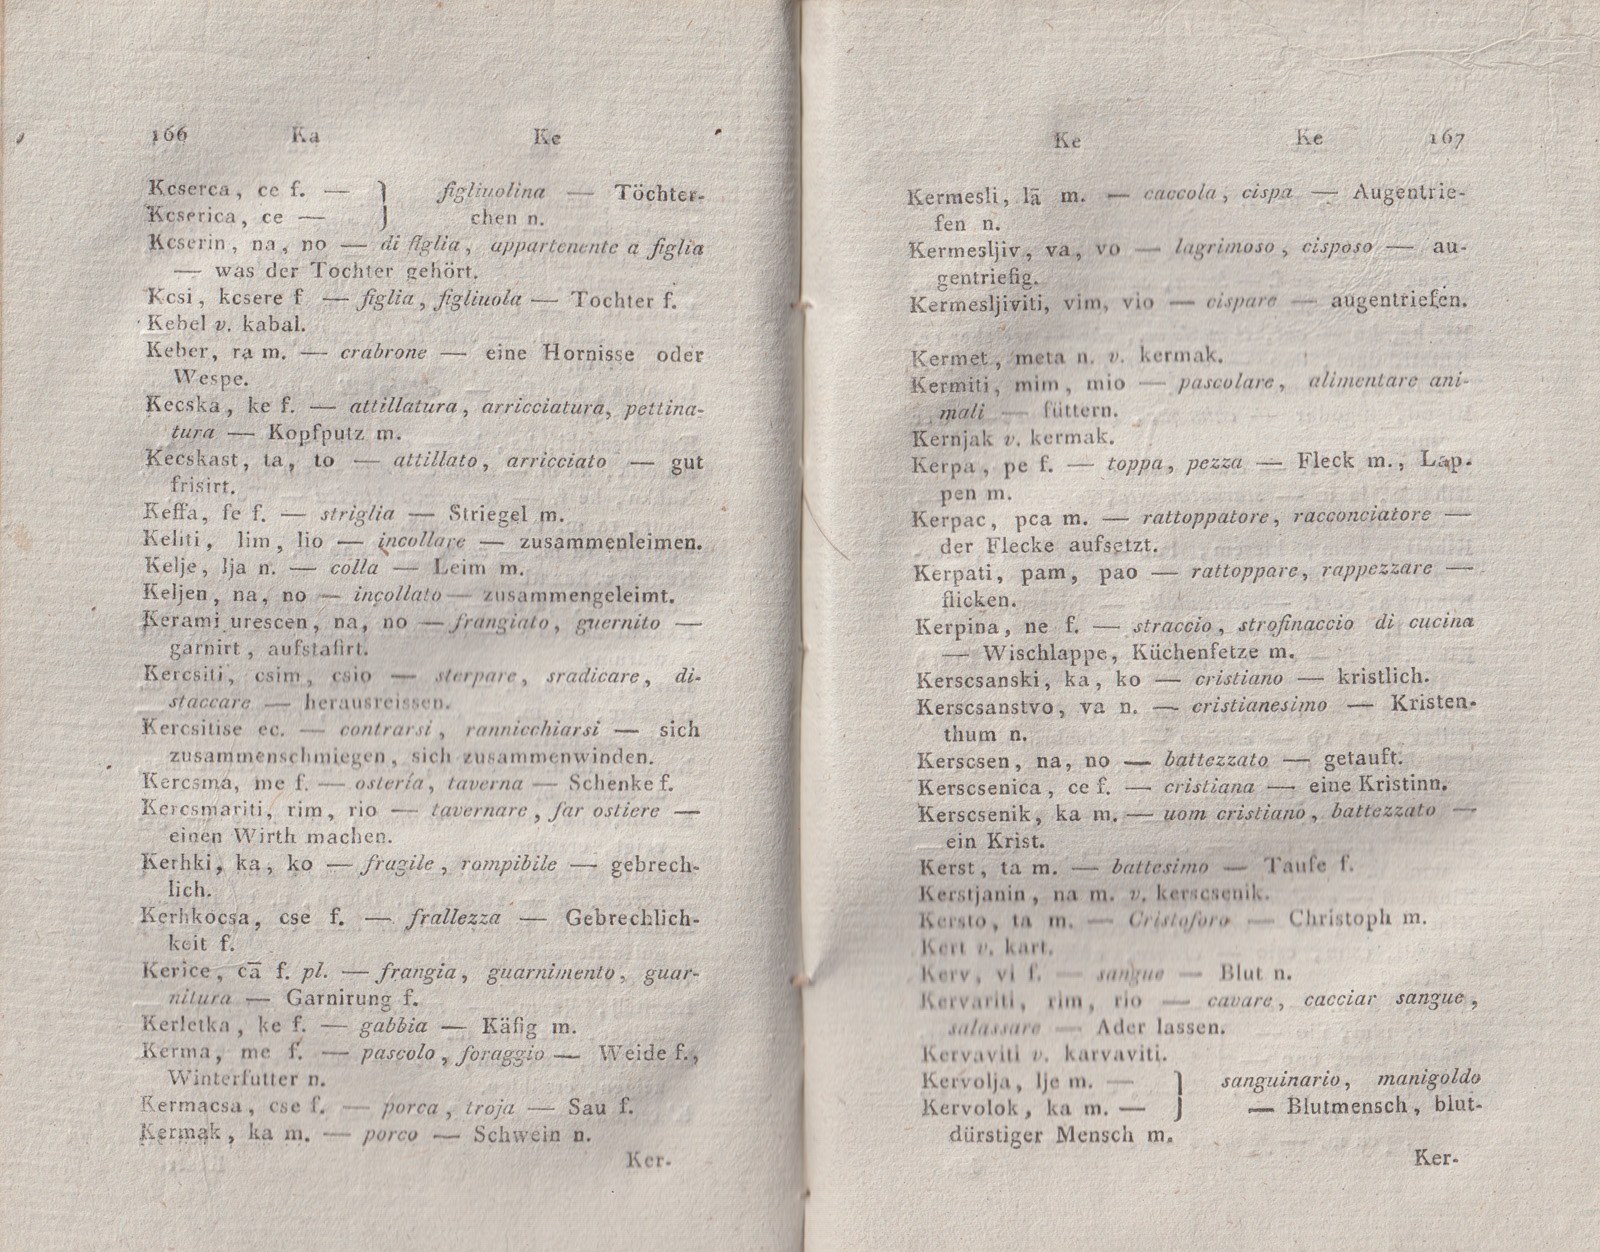 166 Ka Ke
Kcserca, ce f. — } figliuolina — Töchter-
Kcserica, ce — } chen n.
Kcserin, na, no — di figlia, appartenente a figlia
— was der Tochter gehört.
Kcsi, kcsere f — figlia, figliuola — Tochter f.
Kebel v. kabal.
Keber, ra m. — crabrone — eine Hornisse oder
Wespe.
Kecska, ke f. — attillatura, arricciatura, pettina-
tura — Kopfputz m.
Kecskast, ta, to — attillato, arricciato — gut
frisirt.
Keffa, fe f. — striglia — Striegel m.
Keliti, lim, lio — incollare — zusammenleimen.
Kelje, lja n. — colla — Leim m.
Keljen, na, no — incollato — zusammengeleimt.
Kerami urescen, na, no — frangiato, guernito —
garnirt, aufstafirt.
Kercsiti, csim, csio — sterpare, sradicare, di-
staccare — herausreissen.
Kercsitise ec. — contrarsi, rannicchiarsi — sich
zusammenschmiegen, sich zusammenwinden.
Kercsma, me f. — ostería, taverna — Schenke f.
Kercsmariti, rim, rio — tavernare, far ostiere —
einen Wirth machen.
Kerhki, ka, ko — fragile, rompibile — gebrech-
lich.
Kerhkocsa, cse f. — frallezza — Gebrechlich-
keit f.
Kerice, cā f. pl. — frangia, guarnimento, guar-
nitura — Garnirung f.
Kerletka, ke f. — gabbia — Käfig m.
Kerma, me f. — pascolo, foraggio — Weide f.,
Winterfutter n.
Kermacsa, cse f. — porca, troja — Sau f.
Kermak, ka m. — porco — Schwein n.
Ker-
Ke Ke 167
Kermesli, lā m. — caccola, cispa — Augentrie-
fen n.
Kermesljiv, va, vo — lagrimoso, cisposo — au-
gentriefig.
Kermesljiviti, vim, vio — cispare — augentriefen.
Kermet, meta n. v. kermak.
Kermiti, mim, mio — pascolare, alimentare ani-
mali — füttern.
Kernjak v. kermak.
Kerpa, pe f. — toppa, pezza — Fleck m., Lap-
pen m.
Kerpac, pca m. — rattoppatore, racconciatore —
der Flecke aufsetzt.
Kerpati, pam, pao — rattoppare, rappezzare —
flicken.
Kerpina, ne f. — straccio, strofinaccio di cucina
— Wischlappe, Küchenfetze m.
Kerscsanski, ka, ko — cristiano — kristlich.
Kerscsanstvo, va n. — cristianesimo — Kristen-
thum n.
Kerscsen, na, no — battezzato — getauft.
Kerscsenica, ce f. — cristiana — eine Kristinn.
Kerscsenik, ka m. — uom cristiano, battezzato —
ein Krist.
Kerst, ta m. — battesimo — Taufe f.
Kerstjanin, na m. v. kerscsenik.
Kersto, ta m. — Cristoforo — Christoph m.
Kert v. kart.
Kerv, vi f. — sangue — Blut n.
Kervariti, rim, rio — cavare, cacciar sangue,
salassare — Ader lassen.
Kervaviti v. karvaviti.
Kervolja, lje m. — } sanguinario, manigoldo
Kervolok, ka m. — } — Blutmensch, blut-
dürstiger Mensch m.
Ker-